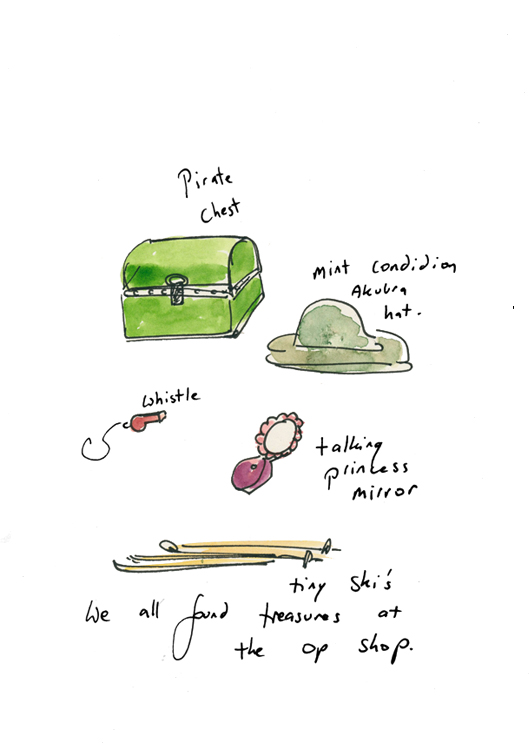 Pirate
Chest
mint condidion
Akubra
hat.
whistle
talking
princess
mirror
tiny ski's
We all found treasures at
the op shop.